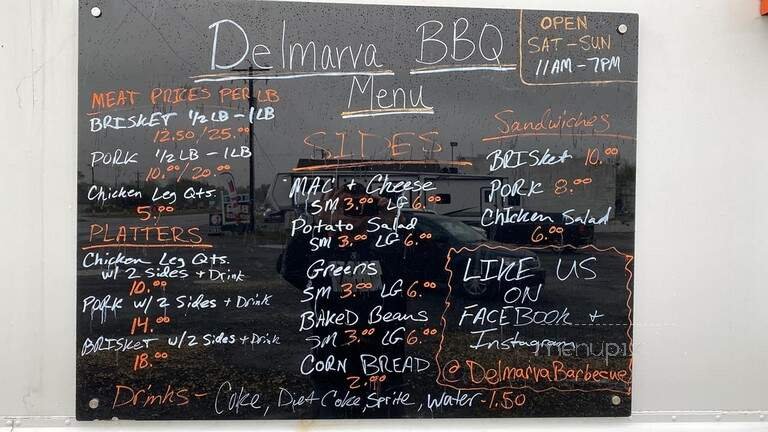 Delmarva BBQ
Menu
OPEN
SAT-SUN
11AM-7PM
MEAT PRICES PER LB
BRISKET 1/2 LB - 1LB
12.50/25.00
PORK 1/2 LB - 1LB
10.00/20.00
Chicken Leg Qts.
5.00
PLATTERS
Chicken Leg Qts.
w/ 2 Sides + Drink
10.00
PORK w/ 2 Sides + Drink
14.00
BRISKET w/ 2 Sides + Drink
18.00
SIDES
MAC + Cheese
SM 3.00 LG 6.00
Potato Salad
SM 3.00 LG 6.00
Greens
SM 3.00 LG 6.00
BAKED Beans
SM 3.00 LG 6.00
CORN BREAD
2.00
Sandwiches
BRISket 10.00
PORK 8.00
Chicken Salad
6.00
LIKE US
ON
FACEBOOK +
Instagram
@DelmarvaBarbecue
Drinks - Coke, Diet Coke, Sprite, Water - 1.50